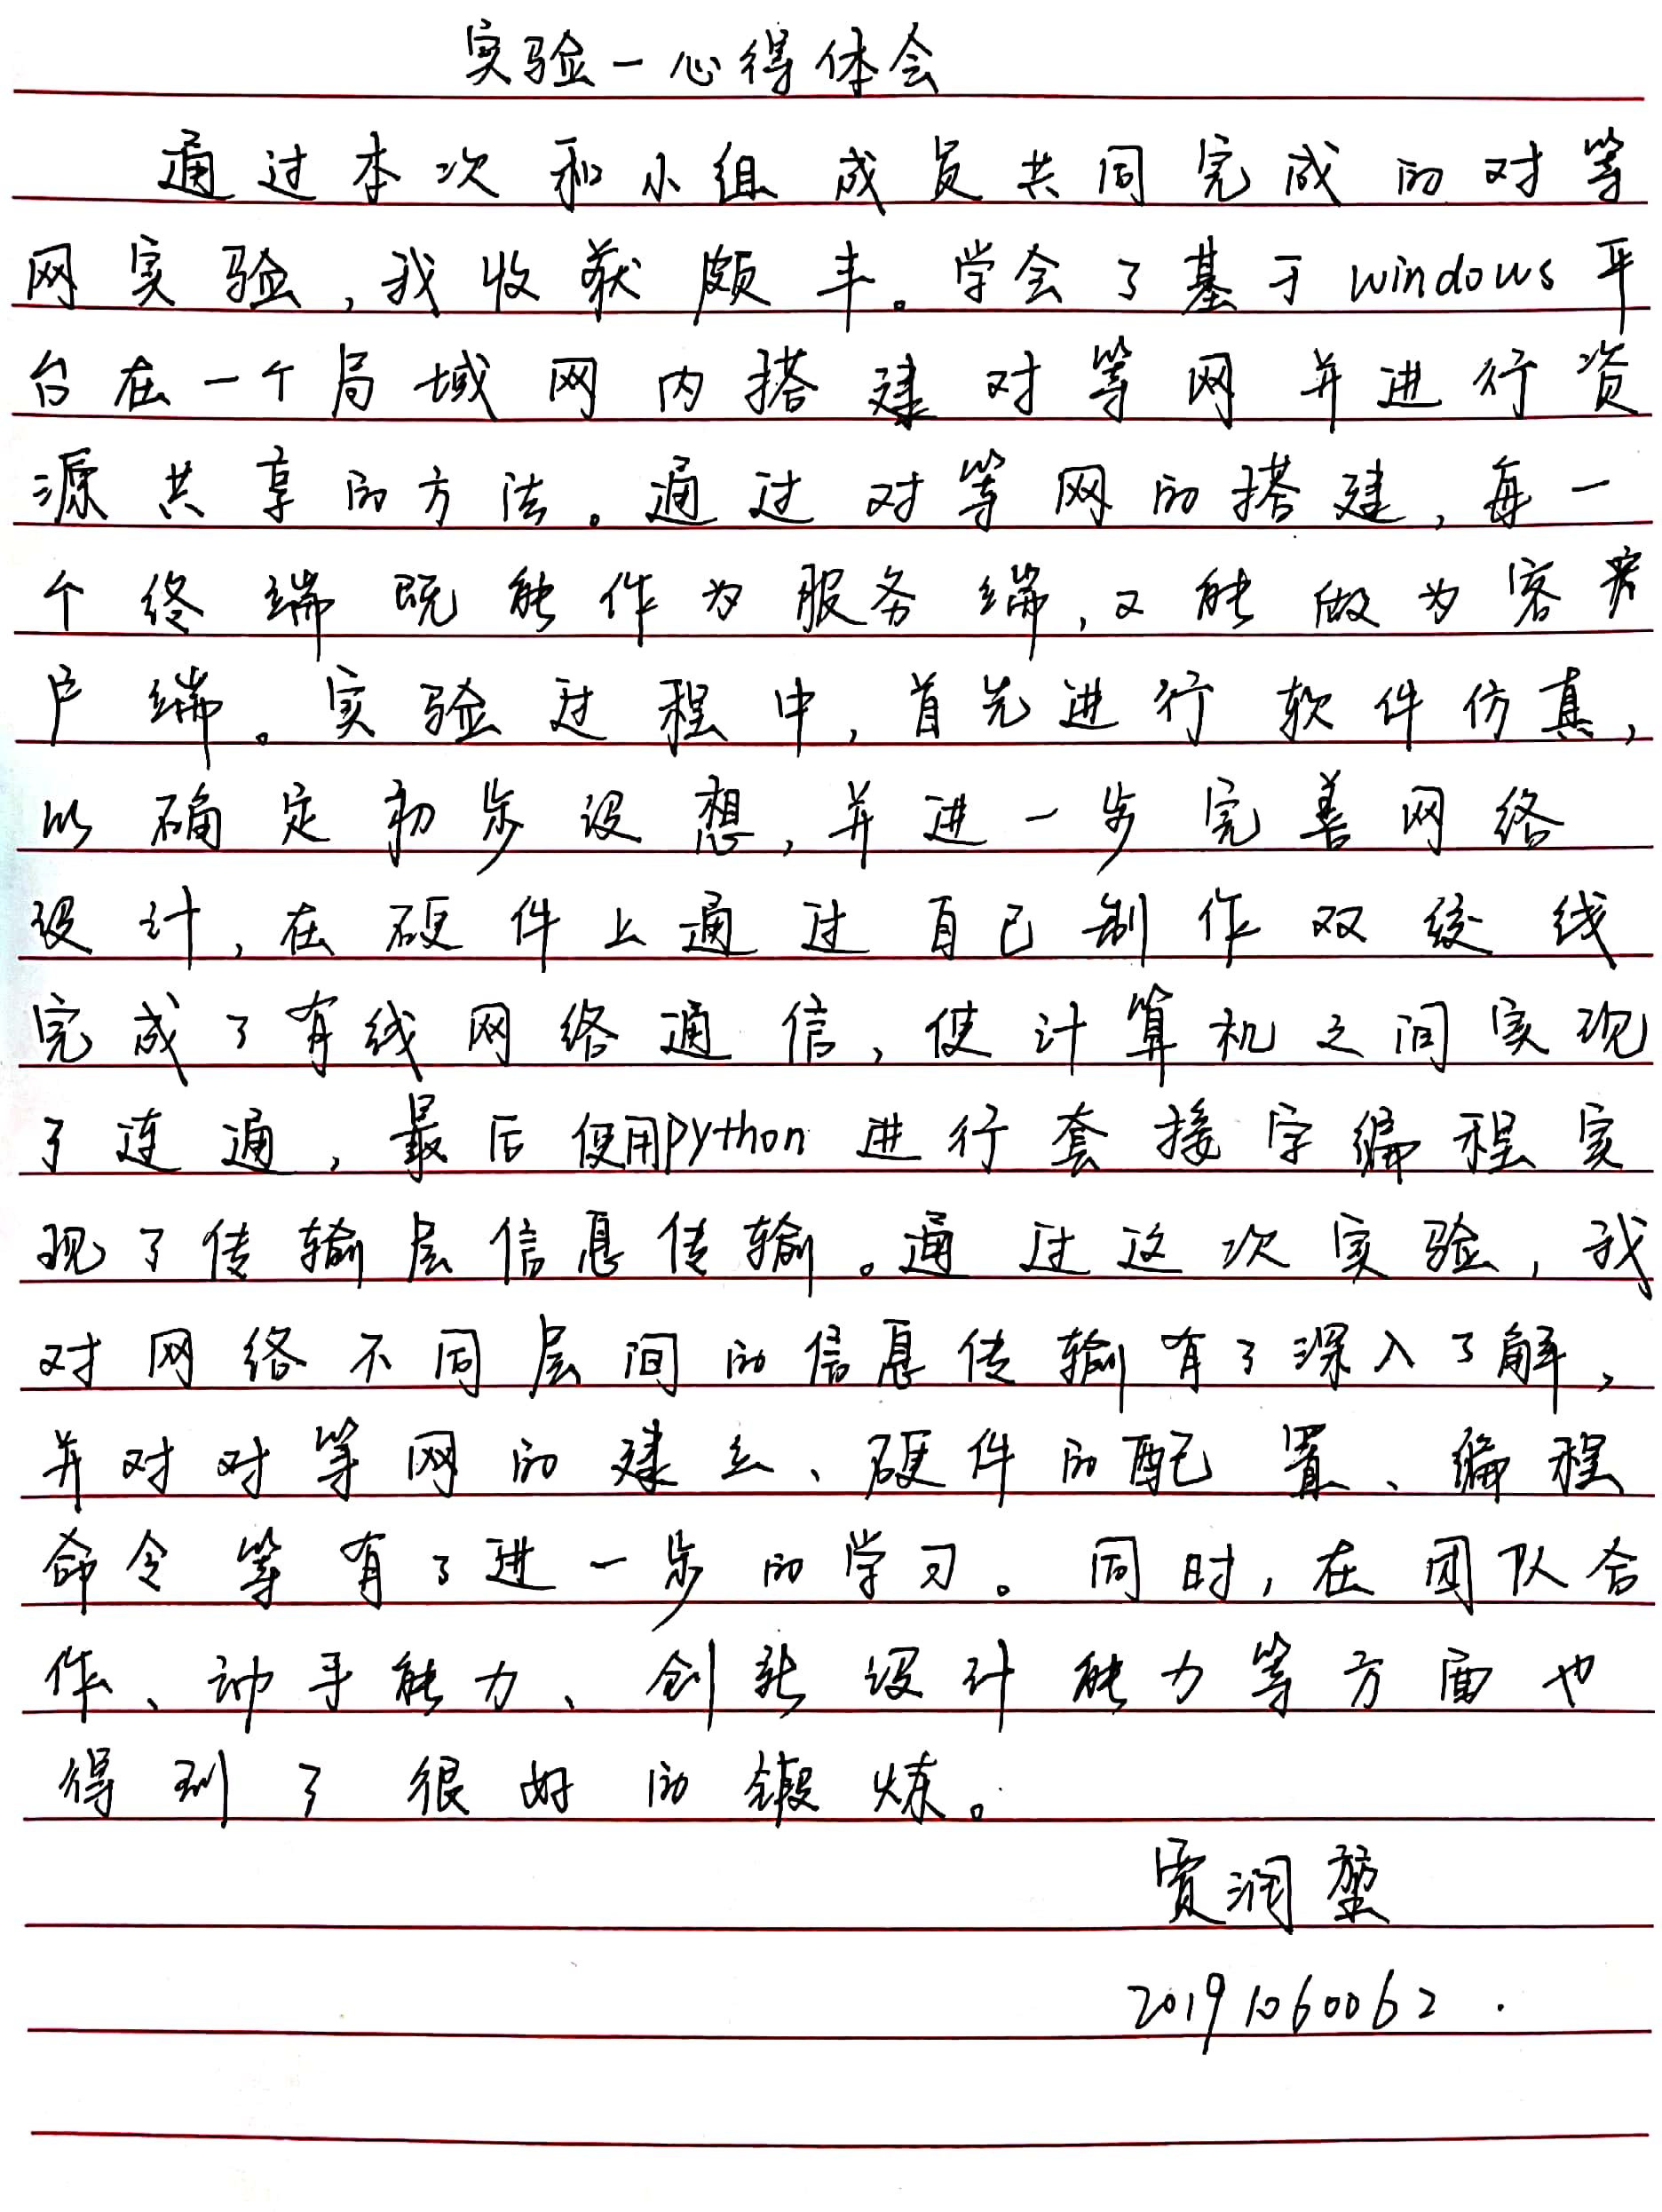 实验一心得体会
通过本次和小组成员共同完成的对等
网实验,我收获颇丰。学会了基于windows平
台在一个局域网内搭建对等网并进行资
源共享的方法。通过对等网的搭建,每一
个终端既能作为服务端,又能做为客
户端。实验过程中,首先进行软件仿真,
以确定初步设想,并进一步完善网络
设计,在硬件上通过自己制作双绞线
完成了有线网络通信,使计算机之间实现
了连通,最后使用python进行套接字编程实
现了传输层信息传输。通过这次实验,我
对网络不同层间的信息传输有了深入了解,
并对对等网的建立、硬件的配置、编程
命令等有了进一步的学习。同时,在团队合
作、动手能力、创新设计能力等方面也
得到了很好的锻炼。
贾润堃
20191060062.